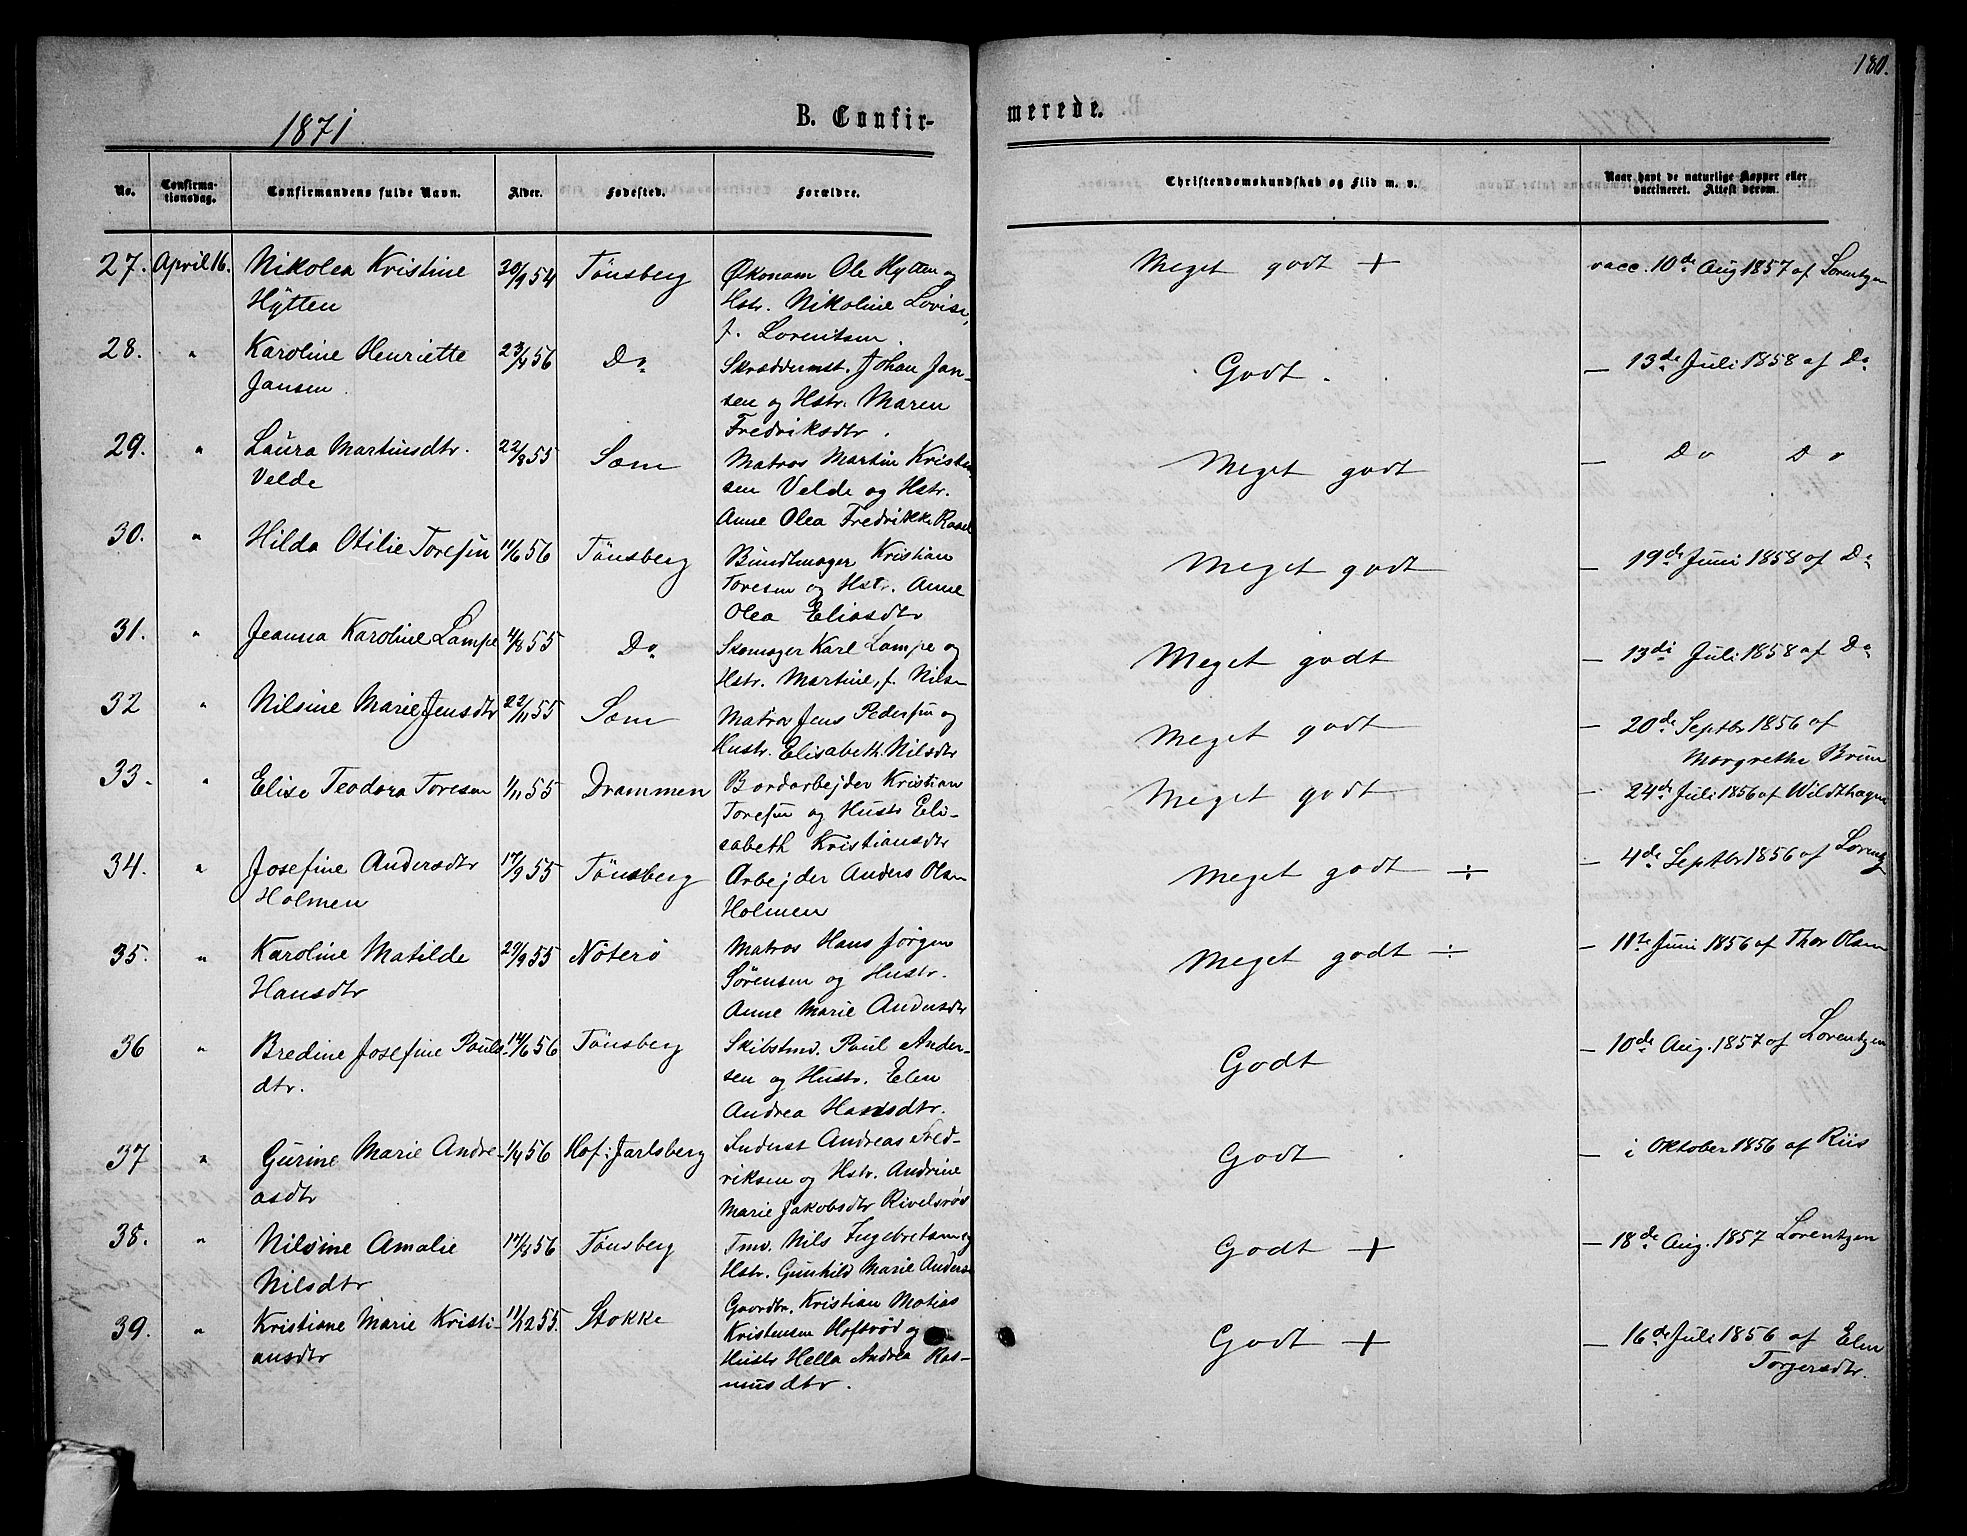 180.
1871
B. Confir-
merede.
No.
Confirma-
tionsdag.
Confirmandens fulde Navn.
Alder.
Fødested.
Forældre.
Christendomskundskab og Flid m. v.
Naar havt de naturlige Kopper eller
vaccineret. Attest derom.
27. April 16. Nikolea Kristine 30/9 54 Tönsberg Økonom Ole Hytten og Meget godt + vacc. 10de Aug 1857 af Lorentzen
Hÿtten Hstr. Nikoline Lovise,
f. Lorentsen.
28. " Karoline Henriette 23/4 56 Do Skræddermst. Johan Jan- Godt. — 13de Juli 1858 af Do
Jansen sen og Hstr. Maren
Fredriksdtr.
29. " Laura Martinsdtr. 22/8 55 Sæm Matros Martin Kristen- Meget godt — Do Do
Velde sen Velde og Hstr.
Anne Olea Fredrikke
30. " Hilda Otilie Toresen 11/6 56 Tönsberg Bundtmager Kristian Meget godt — 19de Juni 1858 af Do
Toresen og Hstr. Anne
Olea Eliasdtr
31. " Jeanna Karoline Lampe 4/8 55 Do Skomager Karl Lampe og Meget godt — 13de Juli 1858 af Do
Hstr. Martine, f. Nilsen
32 " Nilsine Marie Jensdtr 22/11 55 Sæm Matros Jens Pedersen og Meget godt — 20de Septbr 1856 af
Hustr. Elisabeth Nilsdtr Margrethe Bruun
33. " Elise Teodora Toresen 1/11 55 Drammen Bordarbejder Kristian Meget godt — 24de Juli 1856 af Wildthagen
Toresen og Hustr Eli-
sabeth Kristiansdtr
34. " Josefine Andersdtr 17/9 55 Tönsberg Arbejder Anders Olsen Meget godt ÷ — 4de Septbr 1856 af Lorentz
Holmen Holmen
35. " Karoline Matilde 29/9 55 Nöterö Matros Hans Jørgen Meget godt ÷ — 11te Juni 1856 af Thor Olsen
Hansdtr Sørensen og Hustr.
Anne Marie Andersdtr
36 " Bredine Josefine Pouls- 14/6 56 Tönsberg Skibstmd. Poul Ander- Godt — 10de Aug. 1857 af Lorentzen
dtr. sen og Hustr. Elen
Andrea Hansdtr.
37 " Gurine Marie Andre- 1/4 56 Hof i Jarlsberg Inderst Andreas Fred- Godt — i Oktober 1856 af Riis
asdtr riksen og Hstr. Andrine
Marie Jakobsdtr
38. " Nilsine Amalie 14/4 56 Tönsberg Tmd. Nils Ingebretsen og Godt + — 18de Aug. 1857 Lorentzen
Nilsdtr Hstr. Gunhild Marie Anders
39. " Kristiane Marie Kristi- 11/12 55. Stokke Gaardbr. Kristian Matias Godt + — 16de Juli 1856 af Elen
ansdtr Kristensen Hoftvød og Torgersdtr.
Hustr Hella Andrea Ras-
musdtr.